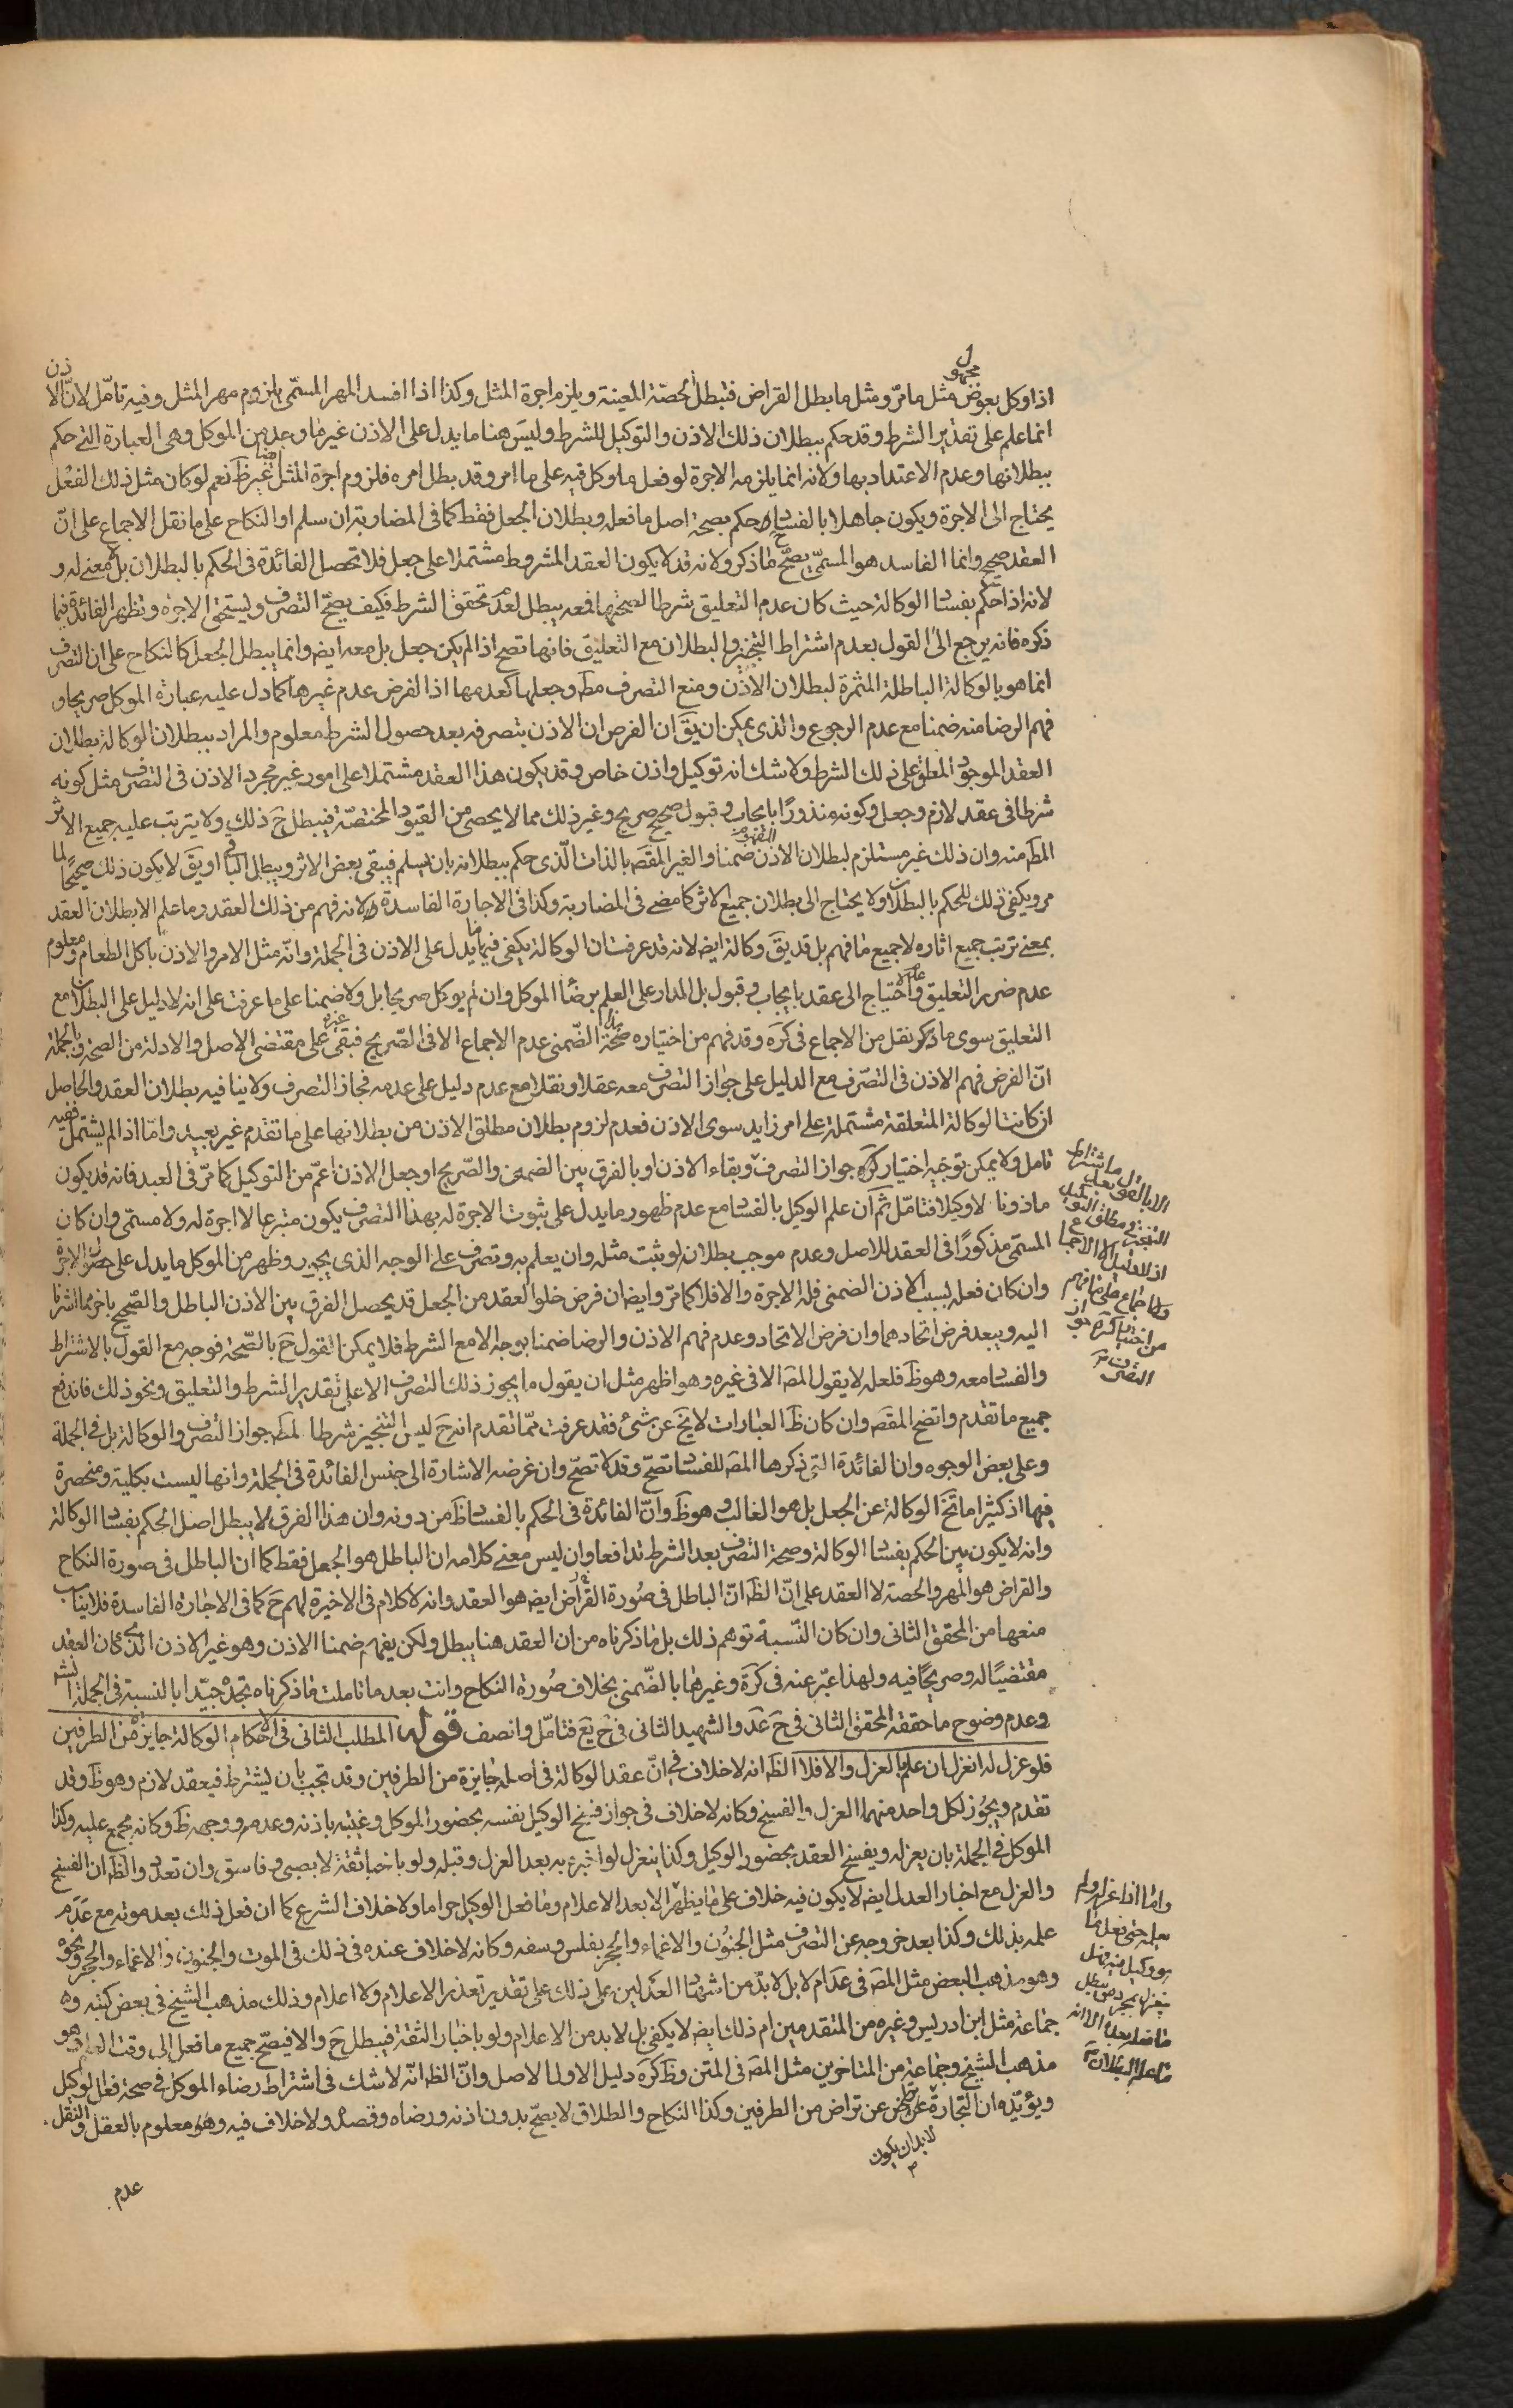 اذا وكل بعوض مجهول مثل ما مرّ ومثل ما بطل القراض فتبطل الحصّة المعينة ويلزم اجرة المثل وكذا اذا افسد المهر المسمّى يلزم مهر المثل وفيه تامّل لانّ الاذن
انما علم على تقدير الشرط وقد حكم ببطلان ذلك الاذن والتوكيل للشرط وليس هنا ما يدل على الاذن غير ما وعد من الموكل وهى العبارة التى حكم
ببطلانها وعدم الاعتداد بها ولانه انما يلزمه الاجرة لو فعل ما وكل فيه على ما امر وقد بطل امره فلزوم اجرة المثل غير ظَ نعم لو كان مثل ذلك الفعل
يحتاج الى الاجرة ويكون جاهلا بالفساد وحكم بصحة اصل ما فعله وبطلان الجعل فقط كما فى المضاربة ان سلم او النكاح على ما نقل الاجماع على انّ
العقد صحيح وانما الفاسد هو المسمّى يصحّ ما ذكر ولانه قد لا يكون العقد المشروط مشتملا على جعل فلا تحصل الفائدة فى الحكم بالبطلان بل لا معنى له و
لانه اذا حكم بفساد الوكالة حيث كان عدم التعليق شرطا لصحتها فمعه يبطل لعدم تحقق الشرط فكيف يصحّ التصرف ويستحق الاجرة وتظهر الفائدة فيما
ذكره فانه يرجع الى القول بعدم اشتراط التنجيز والبطلان مع التعليق فانها تصح اذا لم يكن جعل بل معه ايضَ وانما يبطل الجعل كالنكاح على ان التصرف
انما هو بالوكالة الباطلة المثمرة لبطلان الاذن ومنع التصرف مطَ وجعلها كعدمها اذ الفرض عدم غيرها كما دل عليه عبارة الموكل صريحا و
فهم الرضا منه ضمنا مع عدم الرجوع والذى يمكن ان يقَ ان الفرض ان الاذن بتصرفه بعد حصول الشرط معلوم والمراد ببطلان الوكالة بطلان
العقد الموجود المعلق على ذلك الشرط ولا شك انه توكيل واذن خاص وقد يكون هذا العقد مشتملا على امور غير مجرد الاذن فى التصرف مثل كونه
شرطا فى عقد لازم وجعل وكونه منذورًا بايجاب وقبول صحيح صريح وغير ذلك مما لا يحصى من القيود المختصّة فيبطل حَ ذلك ولا يترتب عليه جميع الاثر
المطَ منه وان ذلك غير مستلزم لبطلان الاذن المفهوم ضمنا والغير المقصَ بالذات الّذى حكم ببطلانه بان يسلم فيبقى بعض الاثر ويبطل الباقى او يقَ لا يكون ذلك صحيحًا لما
مر ويكفى ذلك للحكم بالبطلان ولا يحتاج الى بطلان جميع الاثر كما مضى فى المضاربة وكذا فى الاجارة الفاسدة ولانه فهم من ذلك العقد وما علم الا بطلان العقد
بمعنى ترتب جميع اثاره لا جميع ما فهم بل قد يقَ وكالة ايضَ لانه قد عرفت ان الوكالة يكفى فيها ما يدل على الاذن فى الجملة وانّه مثل الامر والاذن باكل الطعام ومعلوم
عدم ضرر التعليق وعدم احتياج الى عقد بايجاب وقبول بل المدار على العلم برضا الموكل وان لم يوكل صريحا بل ولا ضمنا على ما عرفت على انه لا دليل على البطلان مع
التعليق سوى ما ذكر نقل من الاجماع فى كرَه وقد فهم من اختياره صحة الضّمنى عدم الاجماع الا فى الصّريح فبقى غيره على مقتضى الاصل والادلة من الصحة وبالجملة
انّ الفرض فهم الاذن فى التصّرف مع الدليل على جواز التصرف معه عقلا ونقلا مع عدم دليل على عدمه فجاز التصرف ولا ينافيه بطلان العقد والحاصل
ان كانت الوكالة المتعلقة مشتملة على امر زايد سوى الاذن فعدم لزوم بطلان مطلق الاذن من بطلانها على ما تقدم غير بعيد وامّا اذا لم يشتمل ففيه
تامل ولا يمكن توجيه اختيار كرَه جواز التصرف وبقاء الاذن او بالفرق بين الضمنى والصّريح او جعل الاذن اعمّ من التوكيل كما مرّ فى العبد فانه قد يكون
ماذونا لا وكيلا فتامّل ثم ان علم الوكيل بالفساد مع عدم ظهور ما يدل على ثبوت الاجرة له بهذا التصرف يكون متبرعا لا اجرة له ولا مسمّى وان كان
المسمّى مذكورًا فى العقد للاصل وعدم موجب بطلان لو ثبت مثله وان يعلم به وتصرف على الوجه الذى يجير وظهر من الموكل ما يدل على حصول الاجرة
وان كان فعله بسبب الاذن الضمنى فله الاجرة والا فلا كما مرّ وايضا ان فرض خلو العقد من الجعل قد يحصل الفرق بين الاذن الباطل والصّحيح باخر مما اشرنا
اليه ويبعد فرض اتحادهما وان فرض الاتحاد وعدم فهم الاذن والرضا ضمنا بوجه الا مع الشرط فلا يمكن القول حَ بالصّحة فوجه مع القول بالاشتراط
والفساد معه وهو ظَ فلعله لا يقول المصَ الا فى غيره وهو اظهر مثل ان يقول ما يجوز ذلك التصرف الا على تقدير الشرط والتعليق ونحو ذلك فاندفع
جميع ما تقدم واتضح المقصَ وان كان ظَ العبارات لا يخَ عن شىء فقد عرفت ممّا تقدم انه حَ ليس التنجيز شرطا لمطَ جواز التصرف والوكالة بل فى الجملة
وعلى بعض الوجوه وان الفائدة التى ذكرها المصَ للفساد تصحّ وقد لا تصحّ وان غرضه الاشارة الى جنس الفائدة فى الجملة وانها ليست بكلية ومنحصرة
فيها اذ كثيرا ما تخَ الوكالة عن الجعل بل هو الغالب وهو ظَ وانّ الفائدة فى الحكم بالفساد ظَ من دونه وان هذا الفرق لا يبطل اصل الحكم بفساد الوكالة
وانه لا يكون بين الحكم بفساد الوكالة وصحة التصرف بعد الشرط تدافعا وان ليس معنى كلامه ان الباطل هو الجعل فقط كما ان الباطل فى صورة النكاح
والقراض هو المهر والحصة لا العقد على انّ الظَ انّ الباطل فى صُورة القراض ايضَ هو العقد وانه لا كلام فى الاخيرة لهم حَ كما فى الاجارة الفاسدة فلا يناسب
منعها من المحقق الثانى وان كان النّسبة توهم ذلك بل ما ذكرناه من ان العقد هنا يبطل ولكن يفهم ضمنا الاذن وهو غير الاذن الذى كان العقد
مقتضيًا له وصريحًا فيه ولهذا عبّر عنه فى كرَة وغيرها بالضّمنى بخلاف صُورة النكاح وانت بعد ما تاملت ما ذكرناه تجده جيّدا بالنسبة فى الجملة
وعدم وضوح ما حققه المحقق الثانى فى حَ عَد والشهيد الثانى فى حَ يَع فتامّل وانصف قوله المطلب الثانى فى الاحكام الوكالة جايزة من الطرفين
فلو عزل له انعزل ان علم بالعزل والا فلا الظَ انه لا خلاف فى انّ عقد الوكالة فى اصله جايزة من الطرفين وقد تجب بان يشترط فى عقد لازم وهو ظَ وقد
تقدم ويجُوز لكل واحد منهما العزل والفسخ وكانه لا خلاف فى جواز فسخ الوكيل نفسه بحضور الموكل وغيبته باذنه وعدمه ووجهه ظَ وكانه مجمع عليه وكذا
الموكل فى الجملة بان يعزله ويفسخ العقد بحضور الوكيل وكذا ينعزل لو اخبر به بعد العزل وقبله ولو باخبار ثقة لا بصبى وفاسق وان تعدد والظَ ان الفسخ
والعزل مع اخبار العدل ايضَ لا يكون فيه خلاف على ما يظهر الا بعد الاعلام وما فعل الوكيل حراما ولا خلاف الشرع كما ان فعل ذلك بعد موته مع عدم
علمه بذلك وكذا بعد خروجه عن التصرف مثل الجنُون والاغماء والحجر بفلس وسفه وكانه لا خلاف عنده فى ذلك فى الموت والجنون والاغماء والحجر ونحوه
وهو مذهب البعض مثل المصَ فى عَد ام لا بل لا بدّ من اشهاد العَدلين على ذلك على تقدير تعذر الاعلام ولا اعلام وذلك مذهب الشيخ فى بعض كتبه و
جماعة مثل ابن ادريس وغيره من المتقدمين ام ذلك ايضَ لا يكفى بل لا بد من الاعلام ولو باخبار الثقة فيبطل حَ والا فيصحّ جميع ما فعل الى وقت العلم وهو
مذهب الشيخ وجماعة من المتاخرين مثل المصَ فى المتن وظَ كرَه دليل الاول الاصل وانّ الظَ انّه لا شك فى اشتراط رضاء الموكل فى صحة فعل الوكيل
ويؤيّده ان التجارة عن تراض من الطرفين وكذا النكاح والطلاق لا يصحّ بدون اذنه ورضاه وقصده ولا خلاف فيه وهو معلوم بالعقل والنقل
لا بد ان يكون
عدم
اذ لا دليل الا الاجماع
ولا اجماع على ما فهم
من اختيار كرَه جواز
التصرف
واما اذا عزله ولم
يعلم حتى فعل ما
هو وكيل فيه فهل
ينعزل بمجرده فيبطل
ما فعله بعده الا انه
ما علم البطلان